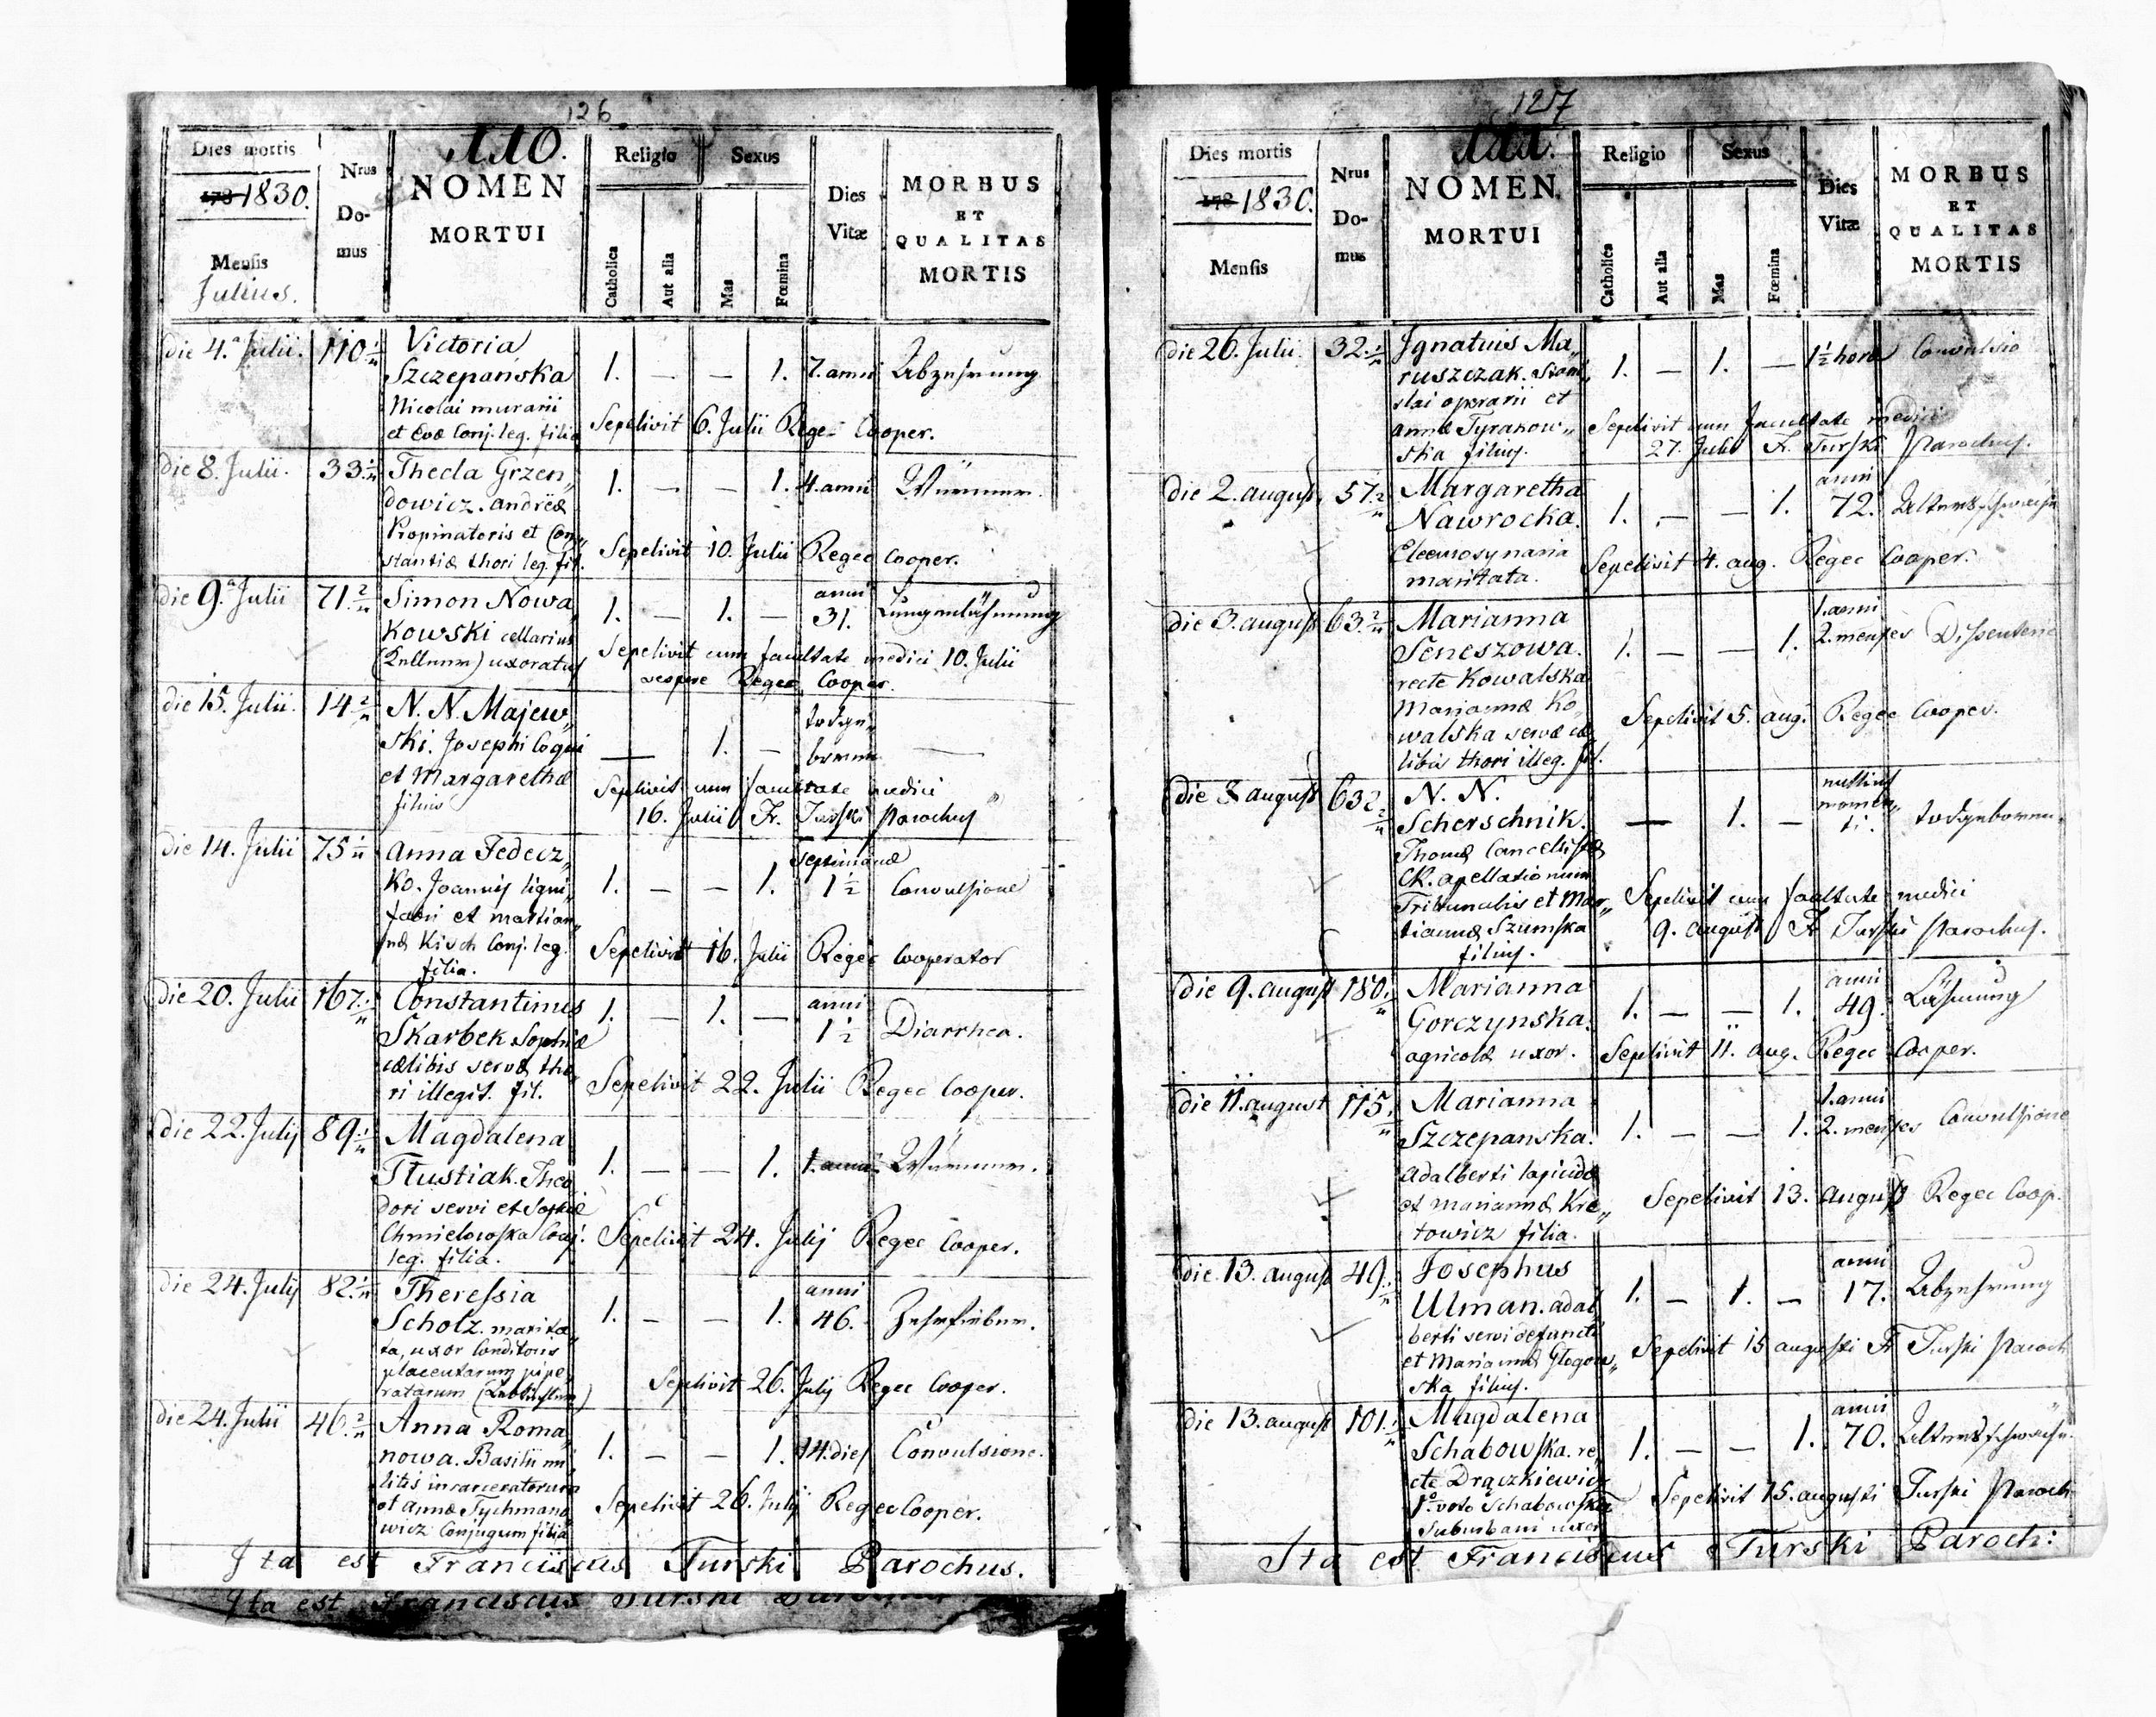 126
110.
Dies mortis
178 1830.
Mensis
Julius.
Nrus
Do-
mus
NOMEN
MORTUI
Religio
Catholica
Aut alia
Sexus
Mas
Fœmina
Dies
Vitæ
MORBUS
ET
QUALITAS
MORTIS
die 4.a Julii. 110 1/n Victoria
Szczepanska 1. — — 1. 7. anni Abzehrung
Nicolai murarii
et Evæ Conj. leg. filia Sepelivit 6. Julii Regec Cooper.
die 8. Julii. 33 1/n Thecla Grzen„
dowicz. Andreæ 1. — — 1. 4. anni Würmer.
Propinatoris et Con„
stantiæ thori leg. fil. Sepelivit 10. Julii Regec Cooper.
die 9.a Julii 71. 2/n Simon Nowa„ 1. — 1. — anni 31. Lungenlähmung
kowski cellarius
(Kellner) uxoratus Sepelivit cum facultate medici 10. Julii
vespere Regec Cooper.
die 15. Julii. 14 2/n N. N. Majew„
ski. Josephi Coqui — 1. — todtge„
boren —
et Margarethæ
filius Sepelivit cum facultate medici
16. Julii Fr. Turski Parochus
die 14. Julii 75 1/n Anna Fedecz„ septimanæ
ko. Joannis ligni„ 1. — — 1. 1 1/2 Convulsione
fabri et Marian„
næ Kisch Conj. leg.
filia. Sepelivit 16. Julii Regec Cooperator
die 20. Julii 167. 1/n Constantinus 1. — 1. — anni
Skarbek Sophiæ 1 1/2 Diarrhea.
cælibis servæ tho„
ri illegit. fil. Sepelivit 22. Julii Regec Cooper.
die 22. Julij 89 1/n Magdalena
Tłustiak. Theo„ 1. — — 1. 1. anni Würmer.
dori servi et Sophiæ
Chmielowska Conj.
leg. filia. Sepelivit 24. Julij Regec Cooper.
die 24. Julij 82. 1/n Theressia anni
Scholz. marita„ 1. — — 1. 46. Zehrfieber.
ta, uxor Conditoris
placentarum pipe„
ratarum Sepelivit 26. Julij Regec Cooper.
die 24. Julii 46. 2/n Anna Roma„
nowa. Basilii mi„ 1. — — 1. 14. dies Convulsione.
litis incarceratorum
et Annæ Tychmano„
wicz Conjugum filia Sepelivit 26. Julij Regec Cooper.
Ita est Franciscus Turski Parochus.
Ita est Franciscus Turski
127
111.
Dies mortis
178 1830.
Mensis
Nrus
Do-
mus
NOMEN
MORTUI
Religio
Catholica
Aut alia
Sexus
Mas
Fœmina
Dies
Vitæ
MORBUS
ET
QUALITAS
MORTIS
die 26. Julii. 32. 1/n Ignatius Ma„
ruszczak. Stani„ 1. — 1. — 1 1/2 hora Convulsio
slai operarii et
Annæ Tyranow„
ska filius. Sepelivit cum facultate medici
27. Julii Fr. Turski Parochus.
die 2. august 57 2/n Margaretha anni
Nawrocka. 1. — — 1. 72. Altersschwäche
Eleemosynaria
maritata. Sepelivit 4. aug. Regec Cooper.
die 3. august 63. 2/n Marianna 1. anni
Seneszowa. 1. — — 1. 2. menses Dissenterie
recte Kowalska
Mariannæ Ko„
walska servæ cæ„
libis thori illeg. fil. Sepelivit 5. aug. Regec Cooper.
die 8 august 63 2/n N. N. nullius
Scherschnik. — 1. — momen„
ti. todtgeboren.
Thomæ Cancellistæ
CR. apellationum
Tribunalis et Mar„
tiannæ Szumska
filius. Sepelivit cum facultate medici
9. august Fr Turski Parochus.
die 9. august 180. 1/n Marianna anni
Gorczynska. 1. — — 1. 49. Lähmung
agricolæ uxor. Sepelivit 11. aug. Regec Cooper.
die 11. august 115. 1/n Marianna 1. anni
Szczepanska. 1. — — 1. 2. menses Convulsione
Adalberti lapicidæ
et Mariannæ Kre„
towicz filia. Sepelivit 13. august Regec Coop.
die 13. august 49. 1/n Josephus anni
Ulman. Adal„ 1. — 1. — 17. Abzehrung
berti servi defuncti
et Mariannæ Glogow„
ska filius. Sepelivit 15 augusti Fr Turski Paroch
die 13. august 101. 1/n Magdalena anni
Schabowska. re„ 1. — — 1. 70. Altersschwäche.
cte Drączkiewicz
1o voto Schabowska
Suburbani uxor Sepelivit 15. augusti Turski Paroch
Ita est Franciscus Turski Paroch: